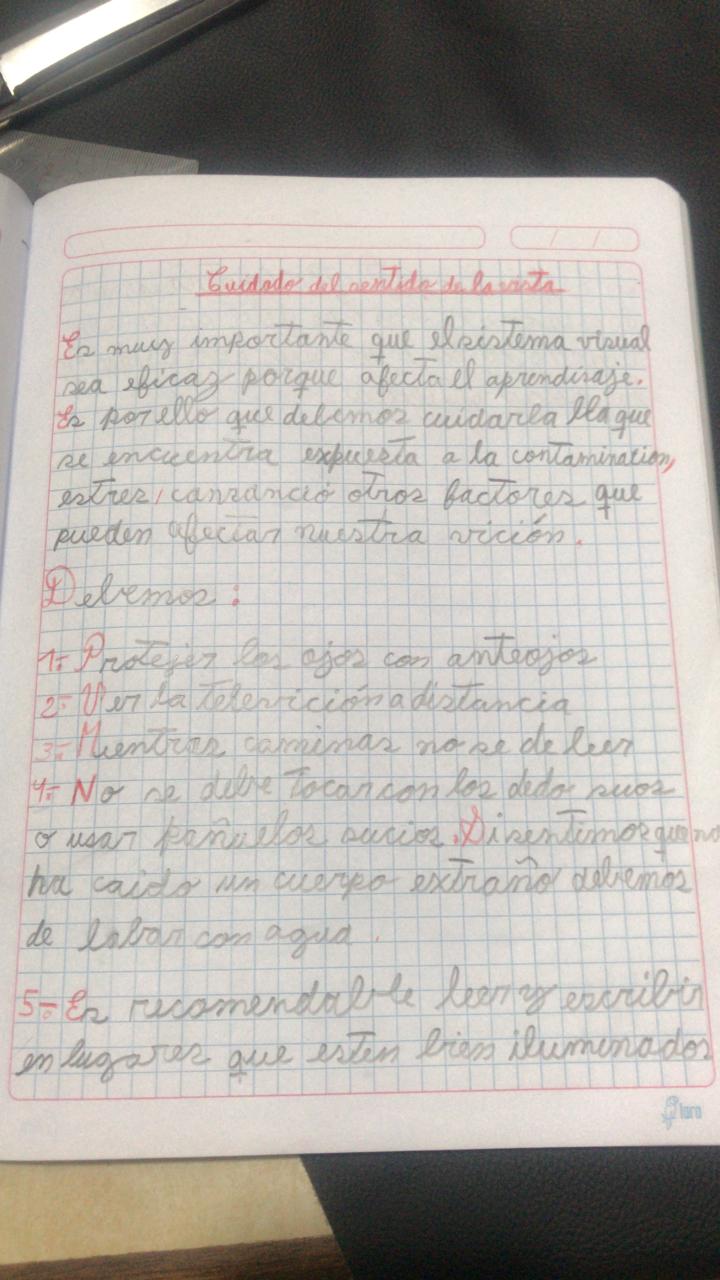 Cuidado del sentido de la vista
Es muy importante que el sistema visual
sea eficaz porque afecta el aprendisaje.
Es por ello que debemos cuidarla lla que
se encuentra expuesta a la contaminacion,
estres, cansancio otros factores que
pueden afectar nuestra vición.
Debemos:
1- Protejer los ojos con anteojos
2- Ver la televición a distancia
3- Mientras caminas no se de leer
4- No se debe tocar con los dedo suos
o usar pañuelos sucios. Si sentimos que no
ha caido un cuerpo extraño debemos
de labar con agua.
5- Es recomendable leer y escribir
en lugares que esten bien iluminados
loro